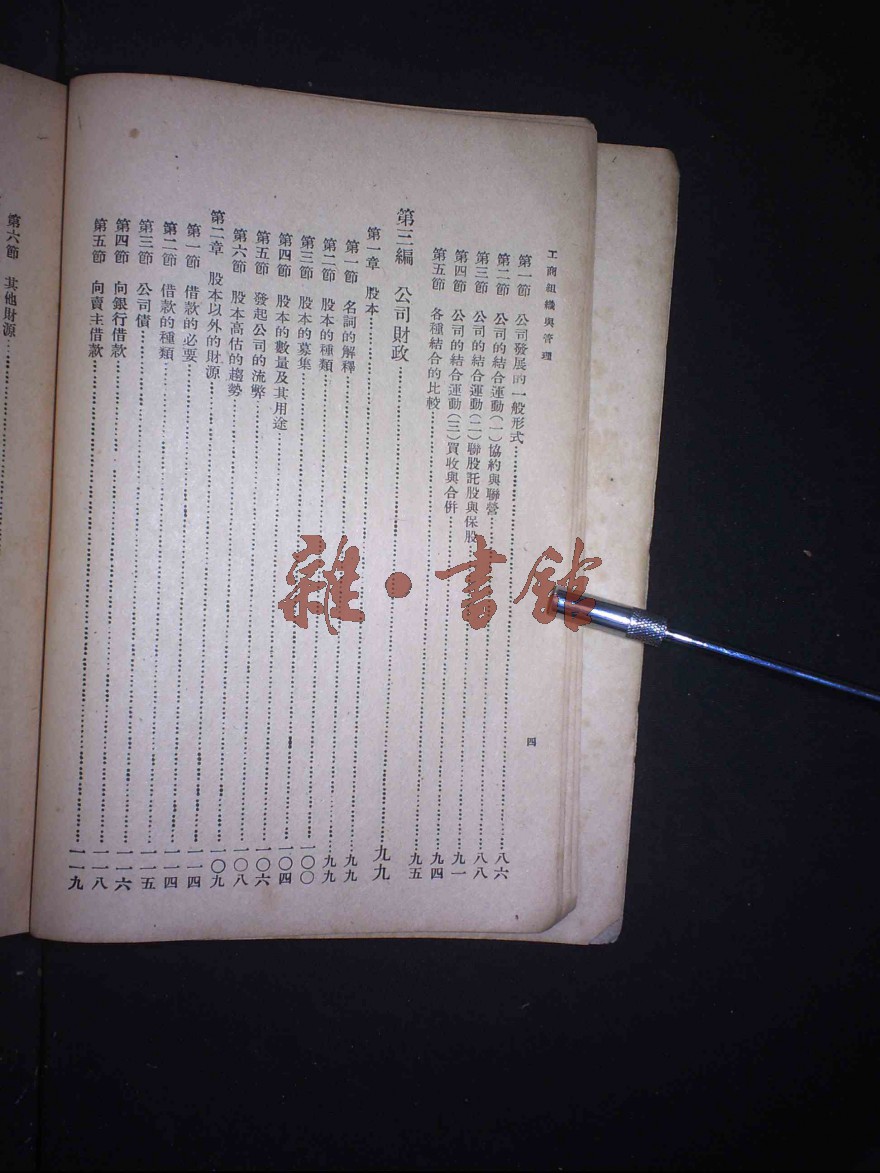 工商組織與管理
四
第一節 公司發展的一般形式……八六
第二節 公司的結合運動(一)協約與聯營……八八
第三節 公司的結合運動(二)聯股託股與保股……九一
第四節 公司的結合運動(三)買收與合併……九四
第五節 各種結合的比較……九五
第三編 公司財政……九九
第一章 股本……九九
第一節 名詞的解釋……九九
第二節 股本的種類……一〇〇
第三節 股本的募集……一〇四
第四節 股本的數量及其用途……一〇六
第五節 發起公司的流弊……一〇八
第六節 股本高估的趨勢……一〇九
第二章 股本以外的財源……一一四
第一節 借款的必要……一一四
第二節 借款的種類……一一五
第三節 公司債……一一六
第四節 向銀行借款……一一八
第五節 向賣主借款……一一九
第六節 其他財源……
雜·書館